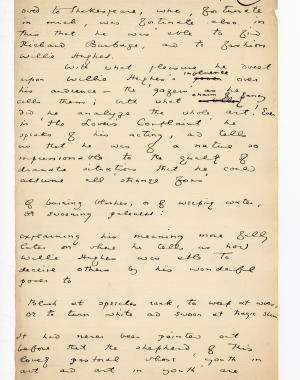 owed to Shakespeare, who, fortunate
in much, was fortunate also in
this that he was able to find
Richard Burbage, and to fashion
Willie Hughes.
With what pleasure he dwelt
upon Willie Hughes's influence over
his audience – the 'gazers' as he
calls them; with what charm of fancy
did he analyze the whole art. Even
in 'the Lover's Complaint' he
speaks of his acting, and tells
us that he was of a nature so
impressionable to the quality of
dramatic situations that he could
assume all 'strange forms'
Of burning blushes, or of weeping water,
Or swooning paleness:
explaining his meaning more fully
later on where he tells us how
Willie Hughes was able to
deceive others by his wonderful
power to
Blush at speeches rank, to weep at woes,
Or to turn white and swoon at tragic shows.
It had never been pointed out
before that the shepherd of this
lovely pastoral whose 'youth in
art and art in youth' are